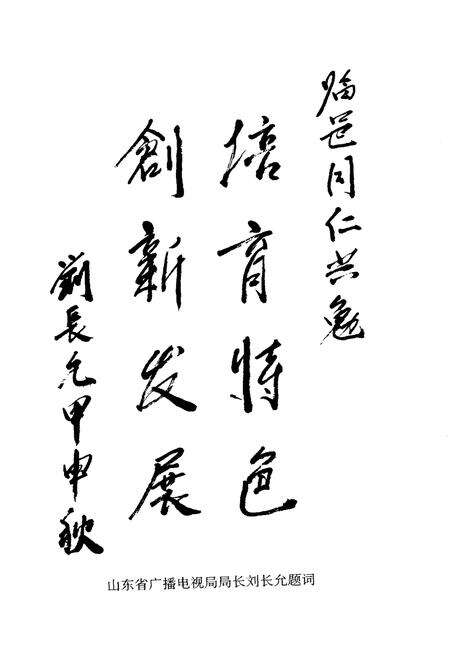 临邑同仁共勉
培育特色
創新发展
劉長允甲申秋
山东省广播电视局局长刘长允题词